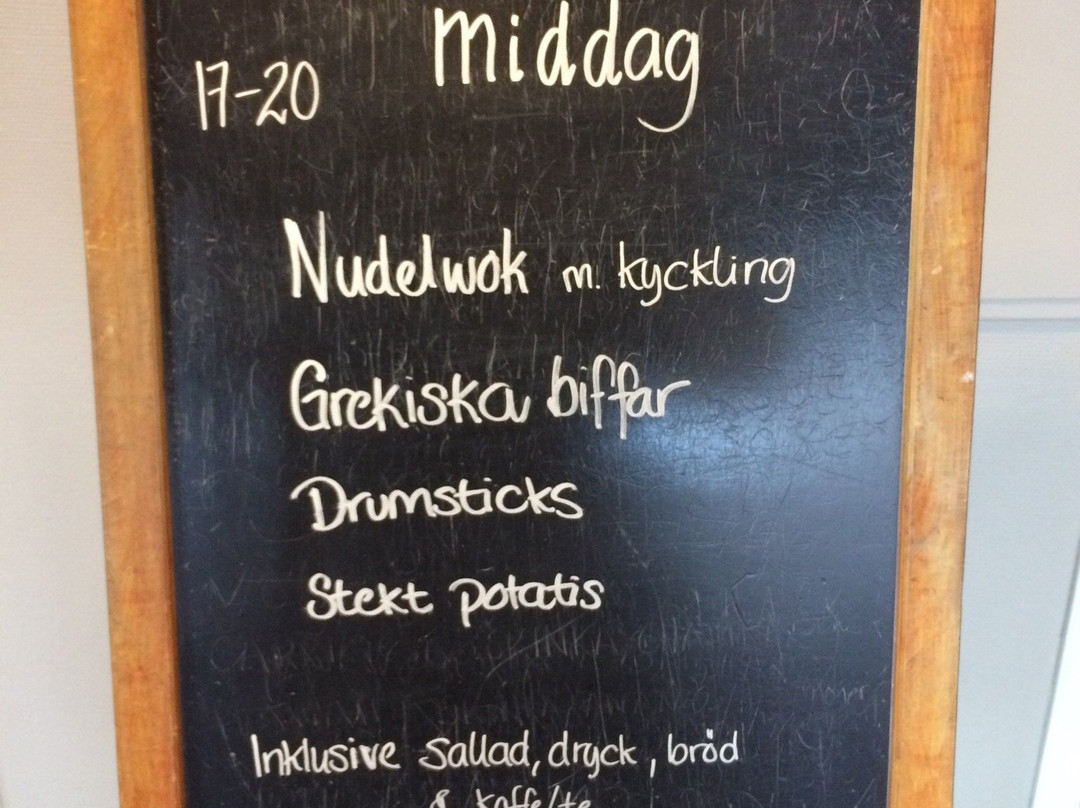 middag
17-20
Nudelwok m. kyckling
Grekiska biffar
Drumsticks
Stekt potatis
Inklusive sallad, dryck, bröd
& kaffe/te